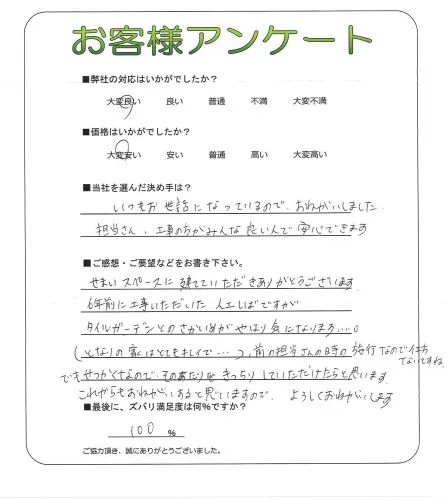 お客様アンケート
■弊社の対応はいかがでしたか？
大変良い 良い 普通 不満 大変不満
■価格はいかがでしたか？
大変安い 安い 普通 高い 大変高い
■当社を選んだ決め手は？
いつもお世話になっているので、おねがいしました
担当さん、工事の方がみんな良い人で安心できます
■ご感想・ご要望などをお書き下さい。
せまいスペースに建てていただきありがとうございます
6年前に工事いただいた人工しばですが
タイルガーデンとのさかいめがやはり気になります…。
(となりの家はとてもキレイで…)、前の担当さんの時の施行なので仕方
ないですね
でもせっかくなので、そのあたりをきっちりしていただけたらと思います
これからもおねがいあると思いますので、よろしくおねがいします
■最後に、ズバリ満足度は何%ですか？
100 %
ご協力頂き、誠にありがとうございました。